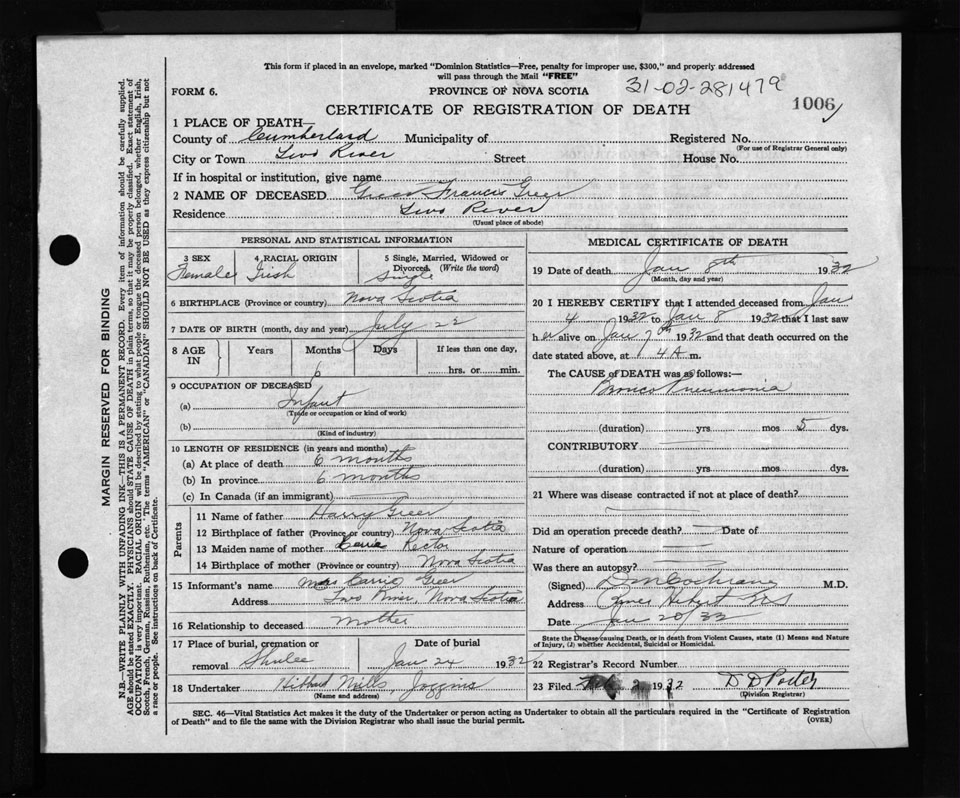 This form if placed in an envelope, marked "Dominion Statistics—Free, penalty for improper use, $300," and properly addressed
will pass through the Mail "FREE"
FORM 6. PROVINCE OF NOVA SCOTIA 31-02-281479
CERTIFICATE OF REGISTRATION OF DEATH 1006
1 PLACE OF DEATH—
County of Cumberland Municipality of Registered No.
(For use of Registrar General only)
City or Town Two River Street House No.
If in hospital or institution, give name
2 NAME OF DECEASED Francis Greer
Residence Two River
(Usual place of abode)
PERSONAL AND STATISTICAL INFORMATION
3 SEX 4 RACIAL ORIGIN 5 Single, Married, Widowed or
Divorced. (Write the word)
Female Irish Single
6 BIRTHPLACE (Province or country) Nova Scotia
7 DATE OF BIRTH (month, day and year) July 22
8 AGE IN Years Months Days If less than one day,
6 hrs. or min.
9 OCCUPATION OF DECEASED
(a) Infant
(Trade or occupation or kind of work)
(b)
(Kind of industry)
10 LENGTH OF RESIDENCE (in years and months)
(a) At place of death 6 months
(b) In province 6 months
(c) In Canada (if an immigrant)
Parents
11 Name of father Harry Greer
12 Birthplace of father (Province or country) Nova Scotia
13 Maiden name of mother Carrie Rector
14 Birthplace of mother (Province or country) Nova Scotia
15 Informant's name Mrs Carrie Greer
Address Two River, Nova Scotia
16 Relationship to deceased Mother
17 Place of burial, cremation or Date of burial
removal Shulee Jan 24 1932
18 Undertaker Mills Joggins
(Name and address)
MEDICAL CERTIFICATE OF DEATH
19 Date of death Jan 8th 1932
(Month, day and year)
20 I HEREBY CERTIFY that I attended deceased from Jan
4 1932 to Jan 8 1932 that I last saw
her alive on Jan 7th 1932 and that death occurred on the
date stated above, at 4 A m.
The CAUSE OF DEATH was as follows:—
Bronco Pneumonia
(duration) yrs. mos 5 dys.
CONTRIBUTORY
(duration) yrs. mos. dys.
21 Where was disease contracted if not at place of death?
Did an operation precede death? Date of
Nature of operation
Was there an autopsy?
(Signed) D M Cochrane M.D.
Address River Hebert N S
Date Jan 20/32
State the Disease causing Death, or in death from Violent Causes, state (1) Means and Nature
of Injury, (2) whether Accidental, Suicidal or Homicidal.
22 Registrar's Record Number
23 Filed Feb 2 1932 D D Porter
(Division Registrar)
SEC. 46—Vital Statistics Act makes it the duty of the Undertaker or person acting as Undertaker to obtain all the particulars required in the "Certificate of Registration
of Death" and to file the same with the Division Registrar who shall issue the burial permit. (OVER)
MARGIN RESERVED FOR BINDING
N.B.—WRITE PLAINLY WITH UNFADING INK—THIS IS A PERMANENT RECORD. Every item of information should be carefully supplied.
AGE should be stated EXACTLY. PHYSICIANS should STATE CAUSE OF DEATH in plain terms, so that it may be properly classified. Exact statement of
OCCUPATION is very important. RACIAL ORIGIN will be described by stating to what people or tongue the deceased person belonged, whether English, Irish,
Scotch, French, German, Russian, Ruthenian, etc. The terms "AMERICAN" or "CANADIAN" SHOULD NOT BE USED as they express citizenship but not
a race or people. See instructions on back of Certificate.